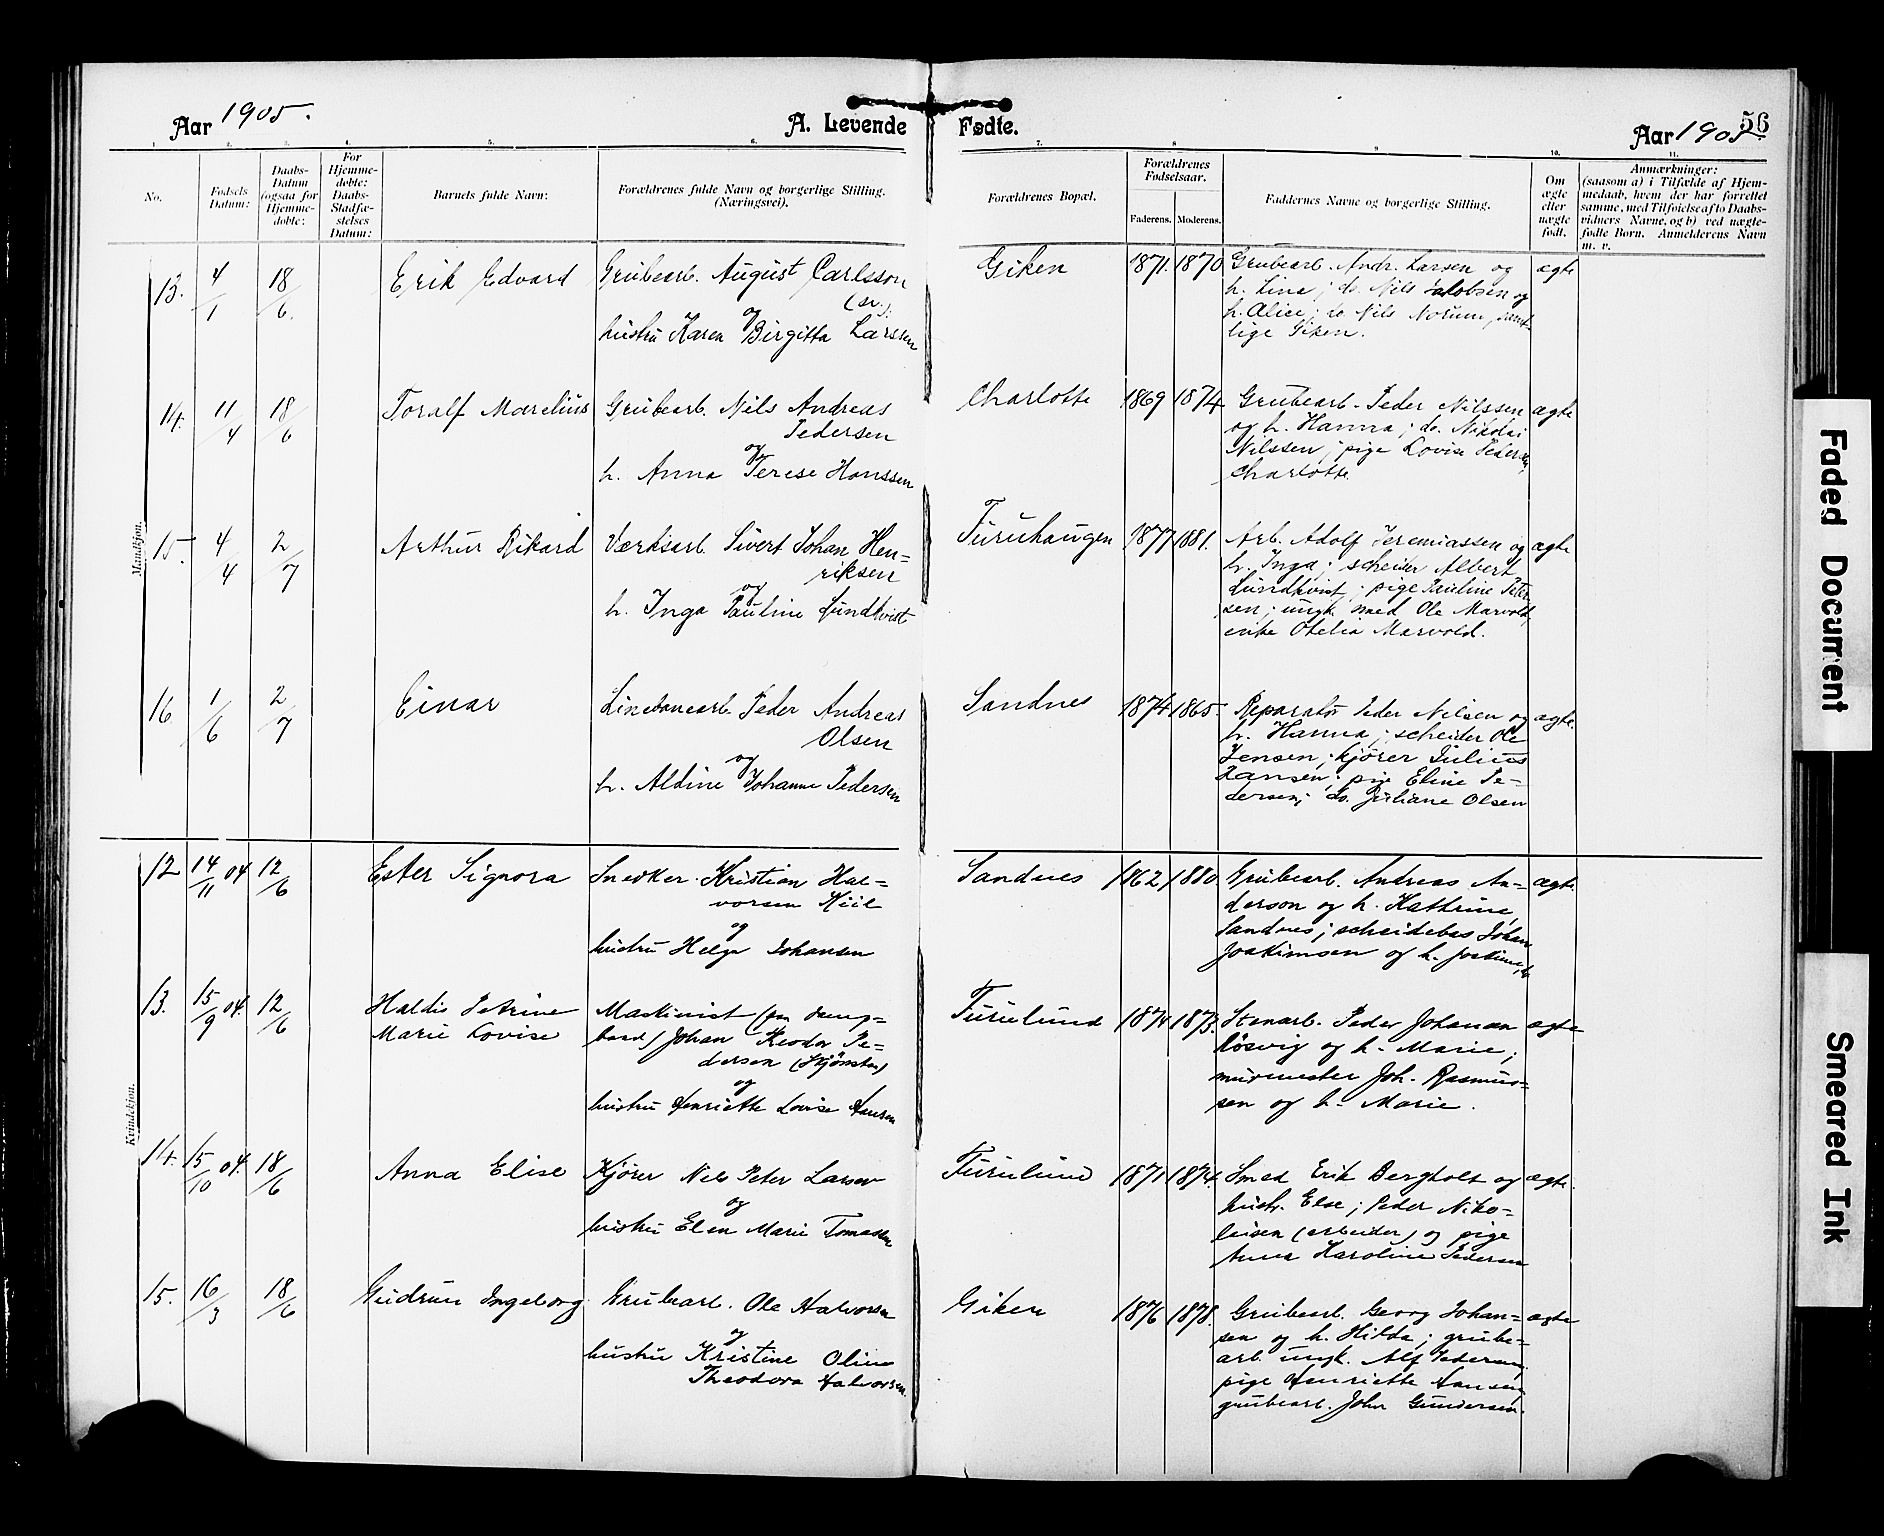 Aar 1905. A. Levende Fødte. Aar 1905 56
1. 2. 3. 4. 5. 6. 7. 8. 9. 10. 11.
No.
Fødsels Datum:
Daabs-Datum (ogsaa for Hjemme-døbte:
For Hjemme-døbte: Daabs-Stadfæ-stelses Datum:
Barnets fulde Navn:
Forældrenes fulde Navn og borgerlige Stilling.
(Næringsvei).
Forældrenes Bopæl.
Forældrenes Fødselsaar.
Faderens. Moderens.
Faddernes Navne og borgerlige Stilling.
Om ægte eller uægte født.
Anmærkninger:
(saasom a) i Tilfælde af Hjem-
medaab, hvem der har forrettet
samme, med Tilføielse af to Daabs-
vidners Navne, og b) ved uægte-
fødte Børn. Anmelderens Navn
m. v.
Mandkjøn.
13. 4/1 18/6. Erik Edvard
Grubearb. August Carlsson
(sv.)
og
hustru Karen Birgitta Larssen
Giken 1871. 1870
Grubearb. Andr. Larsen og
h. Line; do. Nils Jakobsen og
h. Alice; do Nils Norum, samt-
lige Giken.
ægte
14. 11/4 18/6 Toralf Marelius
Grubearb. Nils Andreas
Pedersen
og
h. Anna Terese Hanssen
Charlotte 1869 1874
Grubearb. Peder Nilssen
og h. Hanna; do. Nikolai
Nilssen; pige Lovise Pedersen,
Charlotte.
ægte
15. 4/4 2/7 Arthur Rikard
Værksarb. Sivert Johan Hen=
riksen
og
h. Inga Pauline Lundkvist
Furuhaugen 1877 1881.
Arb. Adolf Jeremiassen og
h. Inga; scheider Albert
Lundkvist; pige Pauline Peter-
sen; ungk. smed Ole Marvold,
enke Otelia Marvold.
ægte
16 1/6 2/7 Einar
Linebanearb. Peder Andreas
Olsen
og
h. Aldine Johanne Pedersen
Sandnes 1874 1865.
Reparatør Peder Nilsen og
h. Hanna; scheider Ole
Jensen; kjører Julius
Hansen; pige Eline Pe-
dersen; do. Juliane Olsen
ægte.
Kvindekjøn.
12 14/11 04 12/6 Ester Signora
Snedker Kristian Hal=
vorsen Hiil
og
hustru Helga Johansen
Sandnes 1862 1880
Grubearb. Andreas An=
derson og h. Kathrine,
Sandnes; scheidebas Johan
Joakimsen og h.
ægte.
13. 15/9 04. 12/6 Haldis Petrine
Marie Lovise
Maskinist (paa damp=
baad) Johan Teodor Pe=
dersen
og
hustru Henriette Lovise Hansen
Furulund 1874 1873.
Stenarb. Peder Johanan
Røsvig og h. Marie;
murmester Joh. Rasmus=
sen og h. Marie.
ægte
14. 15/10 04. 18/6 Anna Elise
Kjører Nils Peter Larsen
og
hustru Elen Marie Tomassen
Furulund 1871 1874.
Smed Erik Bergholt og
hustr. Else; Peder Niko=
laisen (arbeider) og pige
Anna Karoline Pedersen
ægte.
15. 16/3 18/6 Gudrun Ingeborg
Grubearb. Ole Halvorsen
og
hustru Kristine Oline
Theodora Halvorsen.
Giken 1876 1878.
Grubearb. Georg Johan=
sen og h. Hilda; grube=
arb. ungk. Alf Pedersen,
pige Henriette Hansen,
grubearb. John Gundersen.
ægte
Faded Document
Smeared Ink